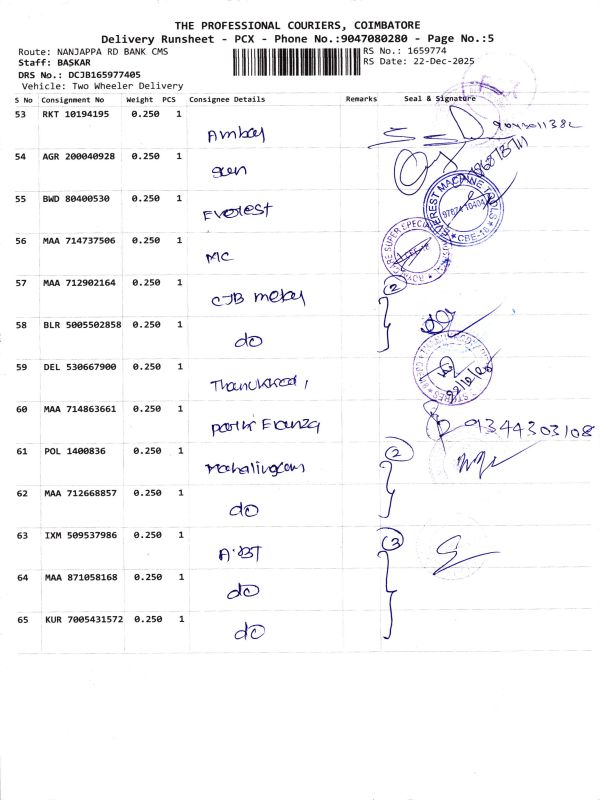 THE PROFESSIONAL COURIERS, COIMBATORE
Delivery Runsheet - PCX - Phone No.:9047080280 - Page No.:5
Route: NANJAPPA RD BANK CMS
RS No.: 1659774
Staff: BASKAR
RS Date: 22-Dec-2025
DRS No.: DCJB165977405
Vehicle: Two Wheeler Delivery
S No Consignment No Weight PCS Consignee Details Remarks Seal & Signature
53 RKT 10194195 0.250 1
54 AGR 200040928 0.250 1
55 BWD 80400530 0.250 1
Everest
EVEREST MACHINE TOOLS
CBE-18
56 MAA 714737506 0.250 1
MC
57 MAA 712902164 0.250 1 2
CJB
58 BLR 5005502858 0.250 1
do
59 DEL 530667900 0.250 1
60 MAA 714863661 0.250 1
9344303108
61 POL 1400836 0.250 1 2
Mahalingam
62 MAA 712668857 0.250 1
do
63 IXM 509537986 0.250 1 3
A.BT
64 MAA 871058168 0.250 1
do
65 KUR 7005431572 0.250 1
do